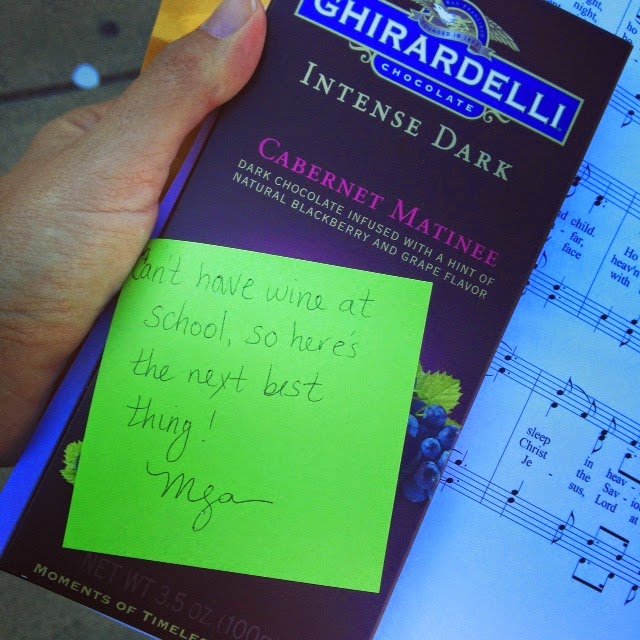 GHIRARDELLI
CHOCOLATE
INTENSE DARK
CABERNET MATINEE
DARK CHOCOLATE INFUSED WITH A HINT OF
NATURAL BLACKBERRY AND GRAPE FLAVOR
Can't have wine at
school, so here's
the next best
thing!
NET WT 3.5 OZ (100g
MOMENTS OF TIMELE
night,
child.
far,
face
Ho
heav'n
with
sleep in heav-
Christ the Sav - ior
Je - sus, Lord at